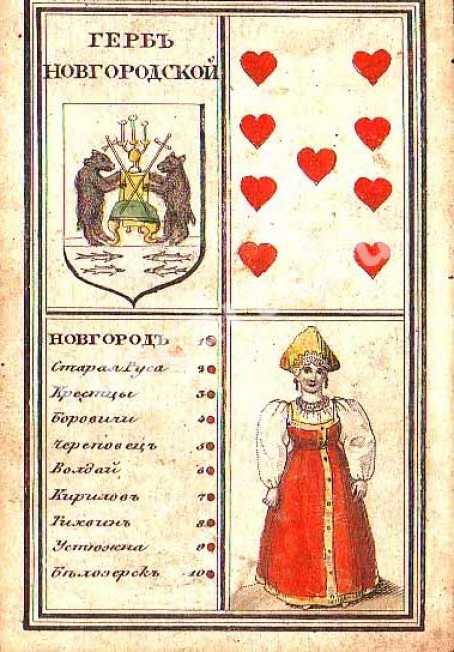 ГЕРБЪ
НОВГОРОДСКОЙ
НОВГОРОДЪ 1
Старая Руса 2
Крестцы 3
Боровичи 4
Череповецъ 5
Волдай 6
Кириловъ 7
Тихвинъ 8
Устюжна 9
Бѣлозерскъ 10